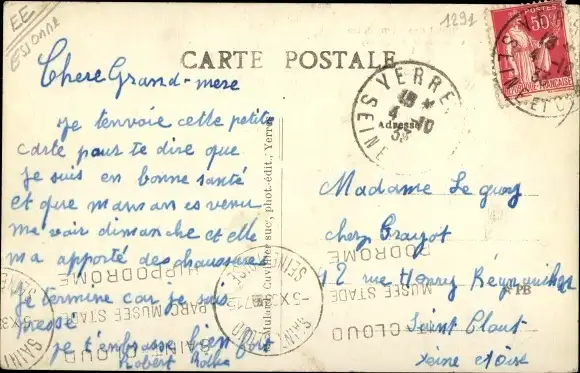 EE
Essonne
1291
CARTE POSTALE
POSTES
50c
REPUBLIQUE FRANÇAISE
YERRES
18
4-10
SEINE
Adresse
Chere Grand-mere
je t'envoie cette petite
carte pour te dire que
je suis en bonne santé
et que maman es venu
me voir dimanche et elle
ma apporté des chaussures
je termine car je suis
pressé
je t'embrasse bien fort
Robert
phot.-édit., Yerres
Madame Le
chez Grayot
12 rue Henry
Saint Clout
Seine et Oise
HIPPODROME
PARC MUSÉE STADE
SAINT CLOUD
-5 X
SAINT CLOUD
HIPPODROME
MUSÉE STADE
CLOUD